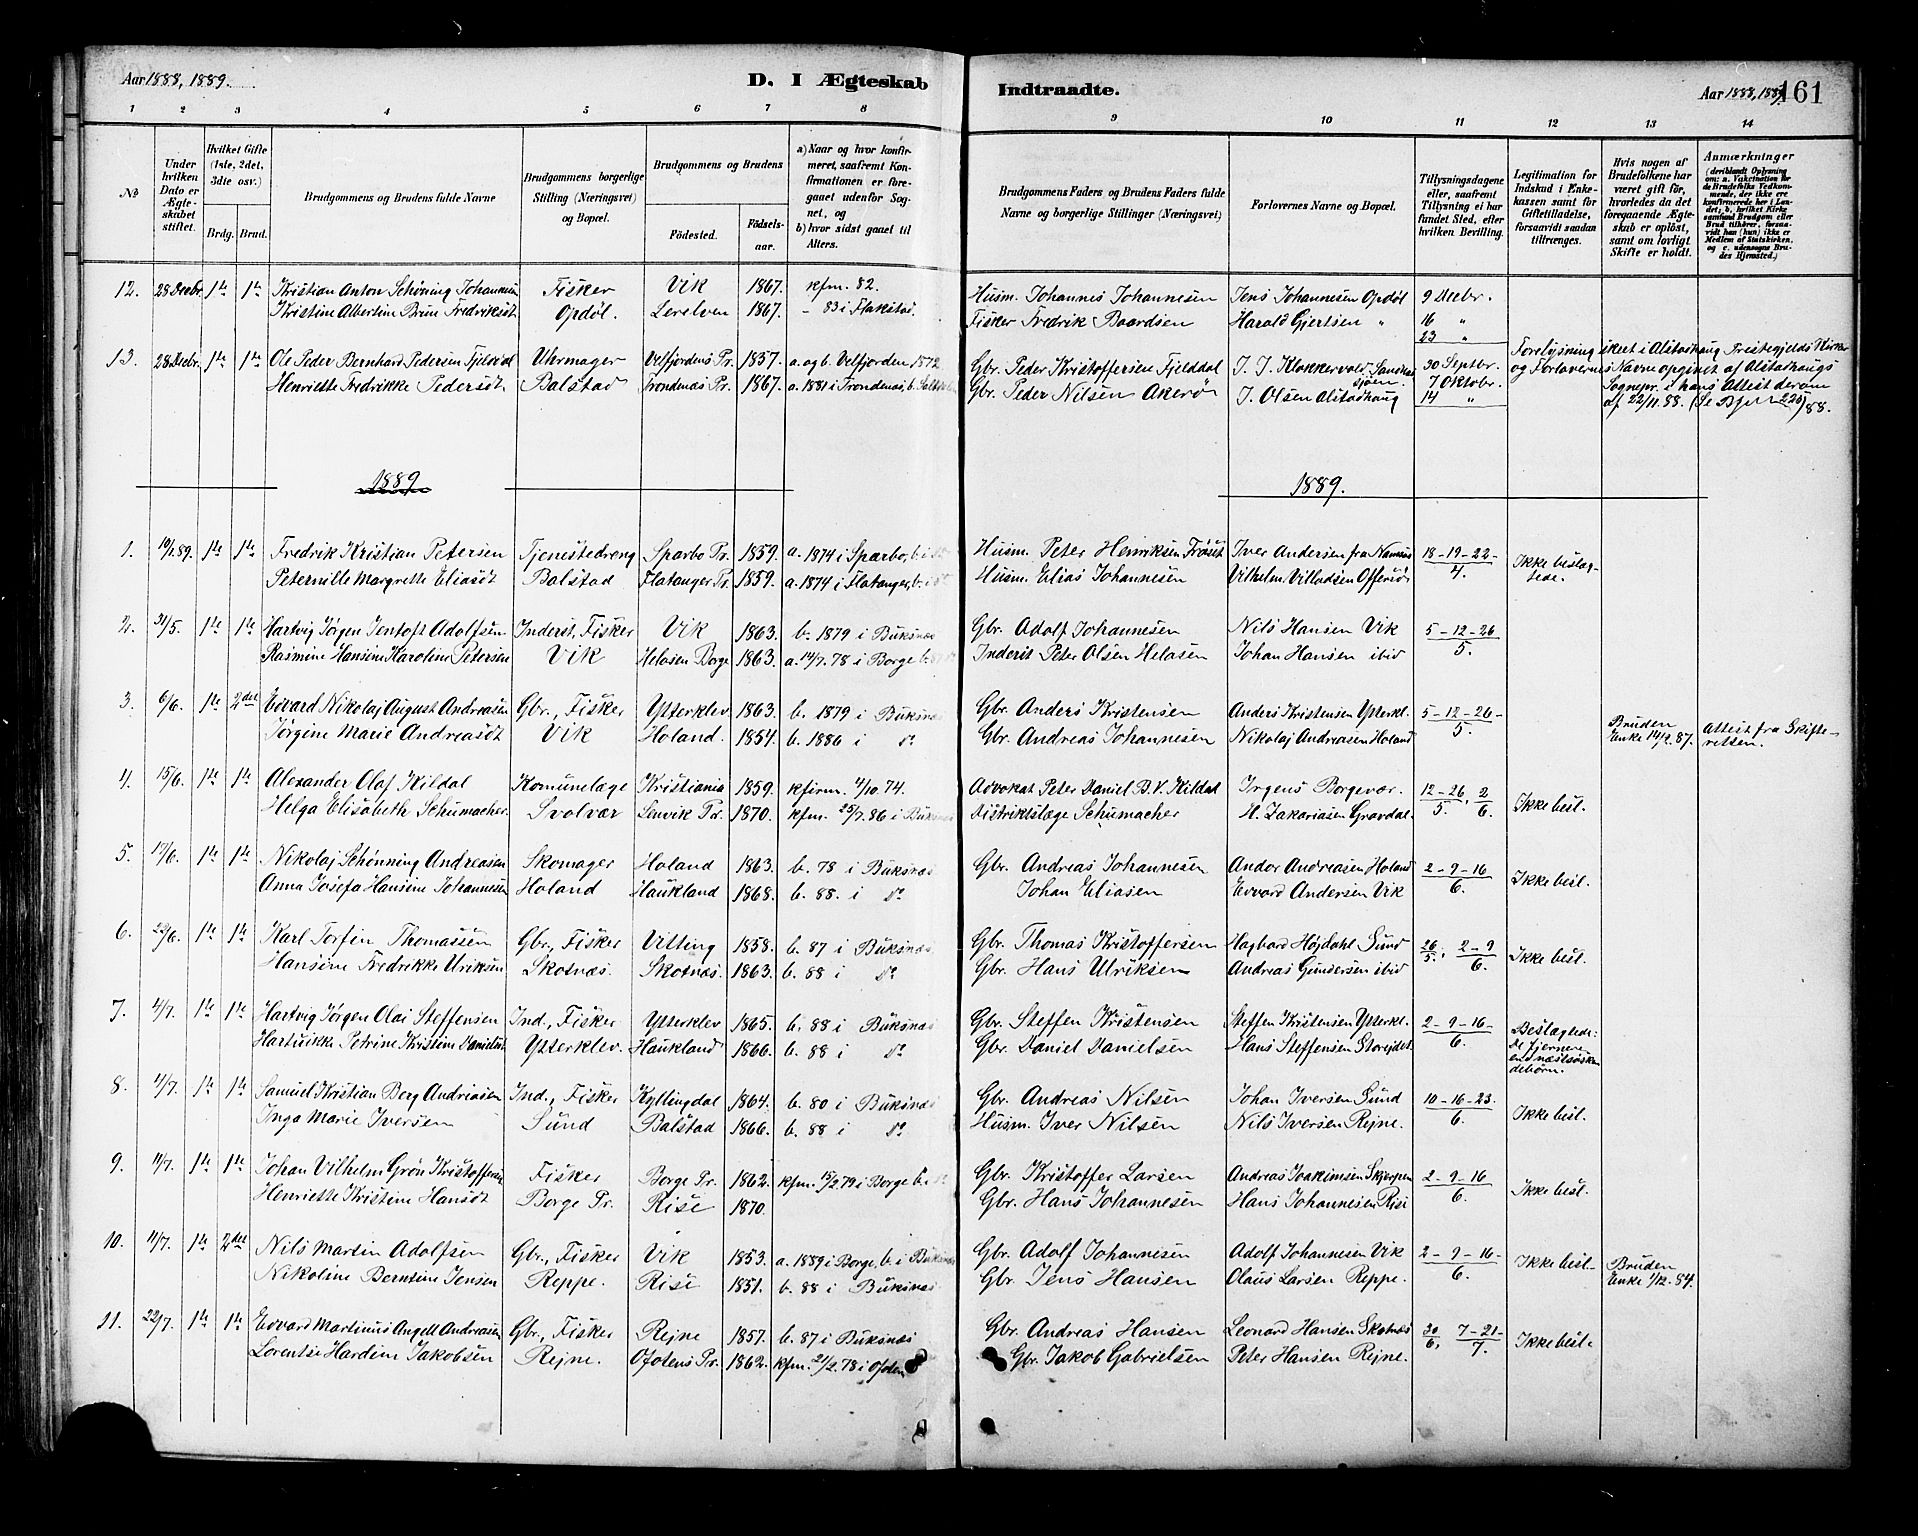 Aar 1888, 1889.
D. I Ægteskab
Indtraadte.
Aar 1888, 1889
161
1 2 3 4 5 6 7 8 9 10 11 12 13 14
No
Under hvilken Dato er Ægteskabet stiftet.
Hvilket Gifte (1ste, 2det, 3die osv.)
Brdg. Brud.
Brudgommens og Brudens fulde Navne
Brudgommens borgerlige Stilling (Næringsvei) og Bopæl.
Brudgommens og Brudens
Fødested.
Fødselsaar.
a) Naar og hvor konfirmeret, saafremt Konfirmationen er foregaaet udenfor Sognet, og
b) hvor sidst gaaet til Alters.
Brudgommens Faders og Brudens Faders fulde Navne og borgerlige Stillinger (Næringsvei)
Forlovernes Navne og Bopæl.
Tillysningsdagene eller, saafremt Tillysning ei har fundet Sted, efter hvilken Bevilling.
Legitimation for Indskud i Enkekassen samt for Giftetilladelse, forsaavidt saadan tiltrænges.
Hvis nogen af Brudefolkene har været gift før, hvorledes da det foregaaende Ægteskab er opløst, samt om lovligt Skifte er holdt.
Anmærkninger (deriblandt Oplysning om: a. Vakcination for de Brudefolks Vedkommende, der ikke ere konfirmerede her i Landet; b. hvilket Kirkesamfund Brudgom eller Brud tilhører, forsaavidt han (hun) ikke er Medlem af Statskirken, og c. udensogns Brudes Hjemsted.)
12. 28 Decbr. 1ste 1ste Kristian Anton Schøning Johannesen Fisker Vik 1867. kfm. 82. Husm. Johannes Johannesen Jens Johannesen Opdøl 9 Decbr.
Kristine Albertine Brun Fredriksdt Opdøl. 1867. – 83 i Flakstad. Fisker Fredrik Baardsen Harald Gjertsen " 16 "
23 "
13. 28 Decbr. 1ste 1ste Ole Peder Bernhard Pedersen Fjeldal Uhrmager Velfjordens Pr. 1857. a. og b. Velfjorden 1872 Gbr. Peder Kristoffersen Fjelddal 30 Septbr. Forelysning skeet i Alstadhaug Præstegjelds Kirke
Henriette Fredrikke Pedersdt Balstad Trondenæs Pr. 1867. a. 1881 i Trondenæs, b. Gbr. Peder Nilsen Akerøn J. Olsen Alstadhaug 7 Oktobr. og Forlovernes Navne opgivet af Alstadhaugs
14 " Sognepr. i hans Attest derom
af 22/11. 88.
1889
1889.
1. 10/1.89. 1ste 1ste Fredrik Kristian Petersen Tjenestedreng Sparbo Pr. 1859. a. 1874 i Sparbo, b. i do Husm. Peter Henriksen Frøset Iver Andersen fra Namsos 18–19–22– Ikke beslæg-
Peternille Margrette Eliasdt Balstad Flatanger Pr. 1859. a. 1874 i Flatanger, b. i do Husm. Elias Johannesen Vilhelm Villadsen Offersø 4. tede.
2. 31/5. 1ste 1ste Hartvig Jørgen Jentoft Adolfsen Inderst, Fisker Vik 1863. b. 1879 i Buksnæs Gbr. Adolf Johannesen Nils Hansen Vik 5–12–26
Rasmine Hansine Karoline Petersen Vik Helosen Borge 1863. a. 14/7. 78 i Borge Inderst Peter Olsen Helosen Johan Hansen ibid 5.
3. 6/6. 1ste 2det Edvard Nikolaj August Andreasen Gbr., Fisker Ytterklev 1863. b. 1879 i Buksnæs Gbr. Anders Kristensen Anders Kristensen Ytterkl. 5–12–26– Bruden Attest fra Skifte-
Jørgine Marie Andreasdt Vik Holand. 1854. b. 1886 i do Gbr. Andreas Johannesen Nikolaj Andreasen Holand 5. Enke 14/12. 87. retten.
4. 15/6. 1ste 1ste Alexander Olaf Kildal Komunelæge Kristiania 1859. kfirm. 4/10. 74. Advokat Peter Daniel B. V. Kildal Irgens Borgevær. 12–26, 2
Helga Elisabeth Schumacher. Svolvær Lenvik Pr. 1870. kfm. 25/7. 86 i Buksnæs Distriktslæge Schumacher H. Zakariasen Gravdal. 5. 6. Ikke besl.
5. 17/6. 1ste 1ste Nikolaj Schønning Andreasen Skomager Holand 1863. b. 78 i Buksnæs Gbr. Andreas Johannesen Andor Andreasen Holand 2–9–16
Anna Josefa Hansine Johannesen Holand Haukland 1868. b. 88. i do Johan Eliasen Edvard Andersen Vik 6. Ikke besl.
6. 22/6. 1ste 1ste Karl Torfin Thomassen Gbr., Fisker Vitting 1858. b. 87 i Buksnæs Gbr. Thomas Kristoffersen Hagbard Højdahl Sund 26/5, 2–9
Hansine Fredrikke Ulriksen Skotnæs. Skotnæs. 1863. b. 88 i do Gbr. Hans Ulriksen Andreas Gundersen ibid 6. Ikke besl.
7. 4/7. 1ste 1ste Hartvig Jørgen Olai Steffensen Ind., Fisker Ytterklev 1865. b. 88 i Buksnæs Gbr. Steffen Kristensen Steffen Kristensen Ytterkl. 2–9–16– Beslægtede:
Hartvikke Petrine Kristine Danielsdt Ytterklev. Haukland 1866. b. 88 i do Gbr. Daniel Danielsen Hans Steffensen Storejdet 6. De fjernere
end næstsøsken-
debørn.
8. 4/7. 1ste 1ste Samuel Kristian Berg Andreasen Ind., Fisker Kyllingdal 1864. b. 80 i Buksnæs Gbr. Andreas Nilsen Johan Iversen Sund 10–16–23.
Inga Marie Iversen Sund Balstad 1866. b. 88 i do Husm. Iver Nilsen Nils Iversen Rejne. 6. Ikke besl.
9. 11/7. 1ste 1ste Johan Vilhelm Grøn Kristoffersen Fisker Borge Pr. 1862. kfm. 15/2 79 i Borge b. do Gbr. Kristoffer Larsen Andreas Joakimsen Skjerpen 2–9–16
Henriette Kristine Hansdt Borge Pr. Risé 1870. Gbr. Hans Johannesen Hans Johannesen Risé 6. Ikke besl.
10. 11/7. 1ste 2det Nils Martin Adolfsen Gbr., Fisker Vik 1853. a. 1889 i Borge, b. i Buksnæs Gbr. Adolf Johannesen Adolf Johannesen Vik 2–9–16– Ikke besl– Bruden
Nikoline Berntine Jensen Reppe. Risé 1851. b. 88 i Buksnæs Gbr. Jens Hansen Olaus Larsen Reppe. 6. Enke 1/12. 84.
11. 22/7. 1ste 1ste Edvard Martinus Angell Andreasen Gbr., Fisker Rejne 1857. b. 87 i Buksnæs Gbr. Andreas Hansen Leonard Hansen Skotnæs 30/6, 7–21–
Lorentse Hardine Jakobsen Rejne. Ofotens Pr. 1862. kfm. 21/2. 78 i Ofoten Gbr. Jakob Gabrielsen Peter Hansen Rejne. 7. Ikke besl.